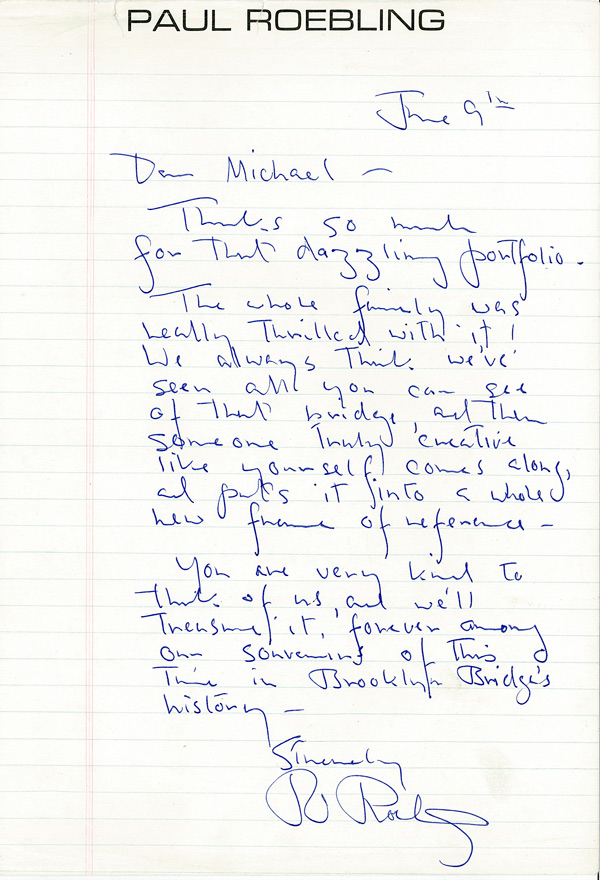 PAUL ROEBLING
June 9th
Dear Michael —
Thanks so much
for that dazzling portfolio.
The whole family was
really thrilled with it!
We always think we've
seen all you can see
of that bridge, and then
someone truly creative
like yourself comes along,
and puts it into a whole
new frame of reference —
You are very kind to
think of us, and we'll
treasure it, forever among
our souvenirs of this
time in Brooklyn Bridge's
history —
Sincerely
P Roebling